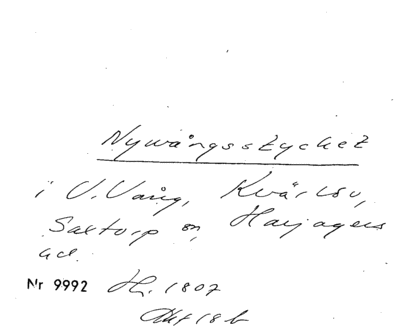 Nywångsstycket
i V. Vång, Kvärlöv,
Saxtorp sn, Harjagers
hd.
Nr 9992 Hi. 1807
Akt 18 b